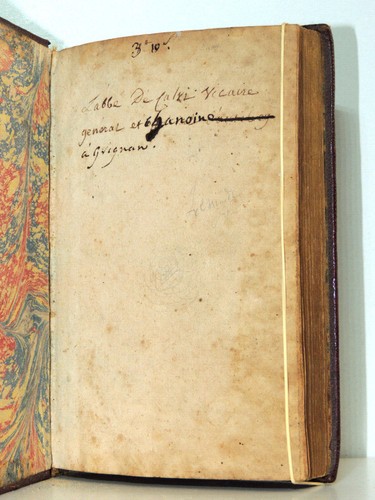 3# 19s
L'abbé De Calvi Vicaire
general et Chanoine
à Grignan.